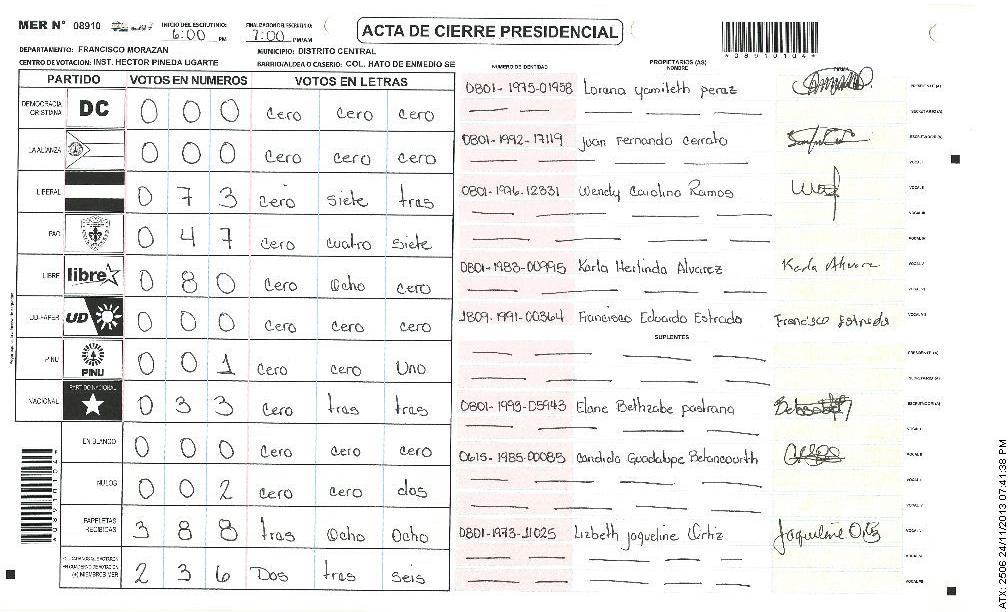 MER N° 08910 INICIO DEL ESCRUTINIO: 6:00 PM FINALIZACION DEL ESCRUTINIO: 7:00 PM/AM
ACTA DE CIERRE PRESIDENCIAL
*08910104*
DEPARTAMENTO: FRANCISCO MORAZAN MUNICIPIO: DISTRITO CENTRAL
CENTRO DE VOTACION: INST. HECTOR PINEDA UGARTE BARRIO/ALDEA O CASERIO: COL. HATO DE ENMEDIO SE
PARTIDO VOTOS EN NUMEROS VOTOS EN LETRAS
DEMOCRACIA CRISTIANA DC 0 0 0 cero cero cero
LA ALIANZA 0 0 0 cero cero cero
LIBERAL 0 7 3 cero siete tras
PAC 0 4 7 cero cuatro siete
LIBRE libre 0 8 0 cero Ocho cero
UD-FAPER UD 0 0 0 cero cero cero
PINU PINU 0 0 1 cero cero Uno
NACIONAL PARTIDO NACIONAL 0 3 3 cero tras tras
EN BLANCO 0 0 0 cero cero cero
NULOS 0 0 2 cero cero dos
PAPELETAS RECIBIDAS 3 8 8 tras Ocho Ocho
(+) MIEMBROS MER 2 3 6 Dos tras seis
NUMERO DE IDENTIDAD PROPIETARIOS (AS) NOMBRE FIRMA
0801-1975-01958 Lorana yamileth peraz PRESIDENTE (A)
SECRETARIO (A)
0801-1992-17119 Juan Fernando Cerrato ESCRUTADOR (A)
VOCAL I
0801-1976-12331 Wendy Carolina Ramos VOCAL II
VOCAL III
VOCAL IV
0801-1983-00995 Karla Herlinda Alvarez Karla Alvarez VOCAL V
VOCAL VI
1809-1991-00364 Francisco Eduardo Estrada Francisco Estrada VOCAL VII
SUPLENTES
PRESIDENTE (A)
SECRETARIO (A)
0801-1993-05943 Elane Bethzabe pastrana ESCRUTADOR (A)
VOCAL I
0615-1985-00085 Candida Guadalupe Betancourth VOCAL II
0801-1973-11025 Lizbeth jaqueline Ortiz Jaqueline Ortiz
VOCAL VI
VOCAL VII
ATX: 2506 24/11/2013 07:41:38 PM